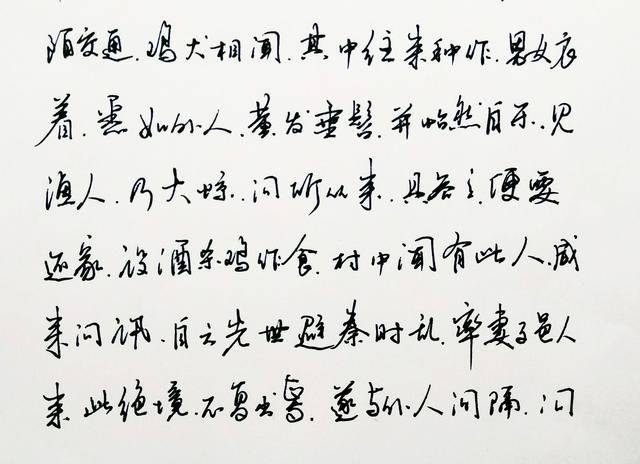 陌交通.鸡犬相闻.其中往来种作.男女衣
着.悉如外人.黄发垂髫.并怡然自乐.见
渔人.乃大惊.问所从来.具答之.便要
还家.设酒杀鸡作食.村中闻有此人.咸
来问讯.自云先世避秦时乱.率妻子邑人
来此绝境.不复出焉.遂与外人间隔.问